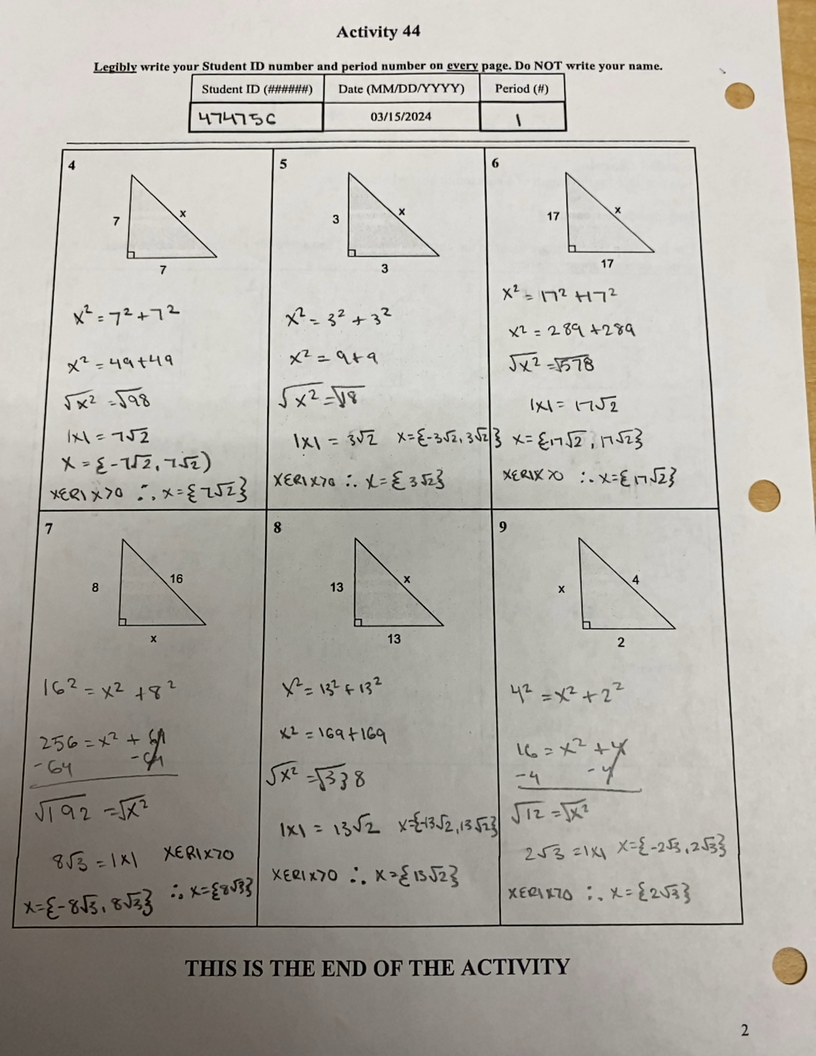 Activity 44
Legibly write your Student ID number and period number on every page. Do NOT write your name.
Student ID (######) Date (MM/DD/YYYY) Period (#)
47475C 03/15/2024 1
4
7
x
7
x² = 7² + 7²
x² = 49 + 49
√x² = √98
|x| = 7√2
x = {-7√2, 7√2)
x∈ℝ|x>0 ∴ x = {7√2}
5
3
x
3
x² = 3² + 3²
x² = 9 + 9
√x² = √18
|x| = 3√2 x = {-3√2, 3√2}
x∈ℝ|x>0 ∴ x = {3√2}
6
17
x
17
x² = 17² + 17²
x² = 289 + 289
√x² = √578
|x| = 17√2
x = {17√2, 17√2}
x∈ℝ|x>0 ∴ x = {17√2}
7
8
16
x
16² = x² + 8²
256 = x² + 64
-64 -64
√192 = √x²
8√3 = |x| x∈ℝ|x>0
x = {-8√3, 8√3} ∴ x = {8√3}
8
13
x
13
x² = 13² + 13²
x² = 169 + 169
√x² = √338
|x| = 13√2 x = {-13√2, 13√2}
x∈ℝ|x>0 ∴ x = {13√2}
9
x
4
2
4² = x² + 2²
16 = x² + 4
-4 -4
√12 = √x²
2√3 = |x| x = {-2√3, 2√3}
x∈ℝ|x>0 ∴ x = {2√3}
THIS IS THE END OF THE ACTIVITY
2